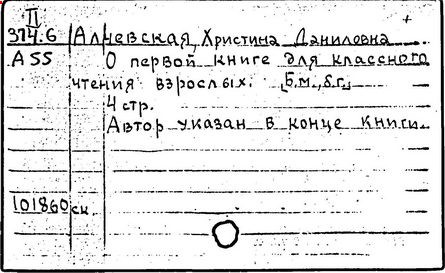 II +
374.6 Алчевская, Христина Даниловна
А55 О первой книге для классного
чтения взрослых. [Б.м., б.г.]
4 стр.
Автор указан в конце книги.
101860 ск